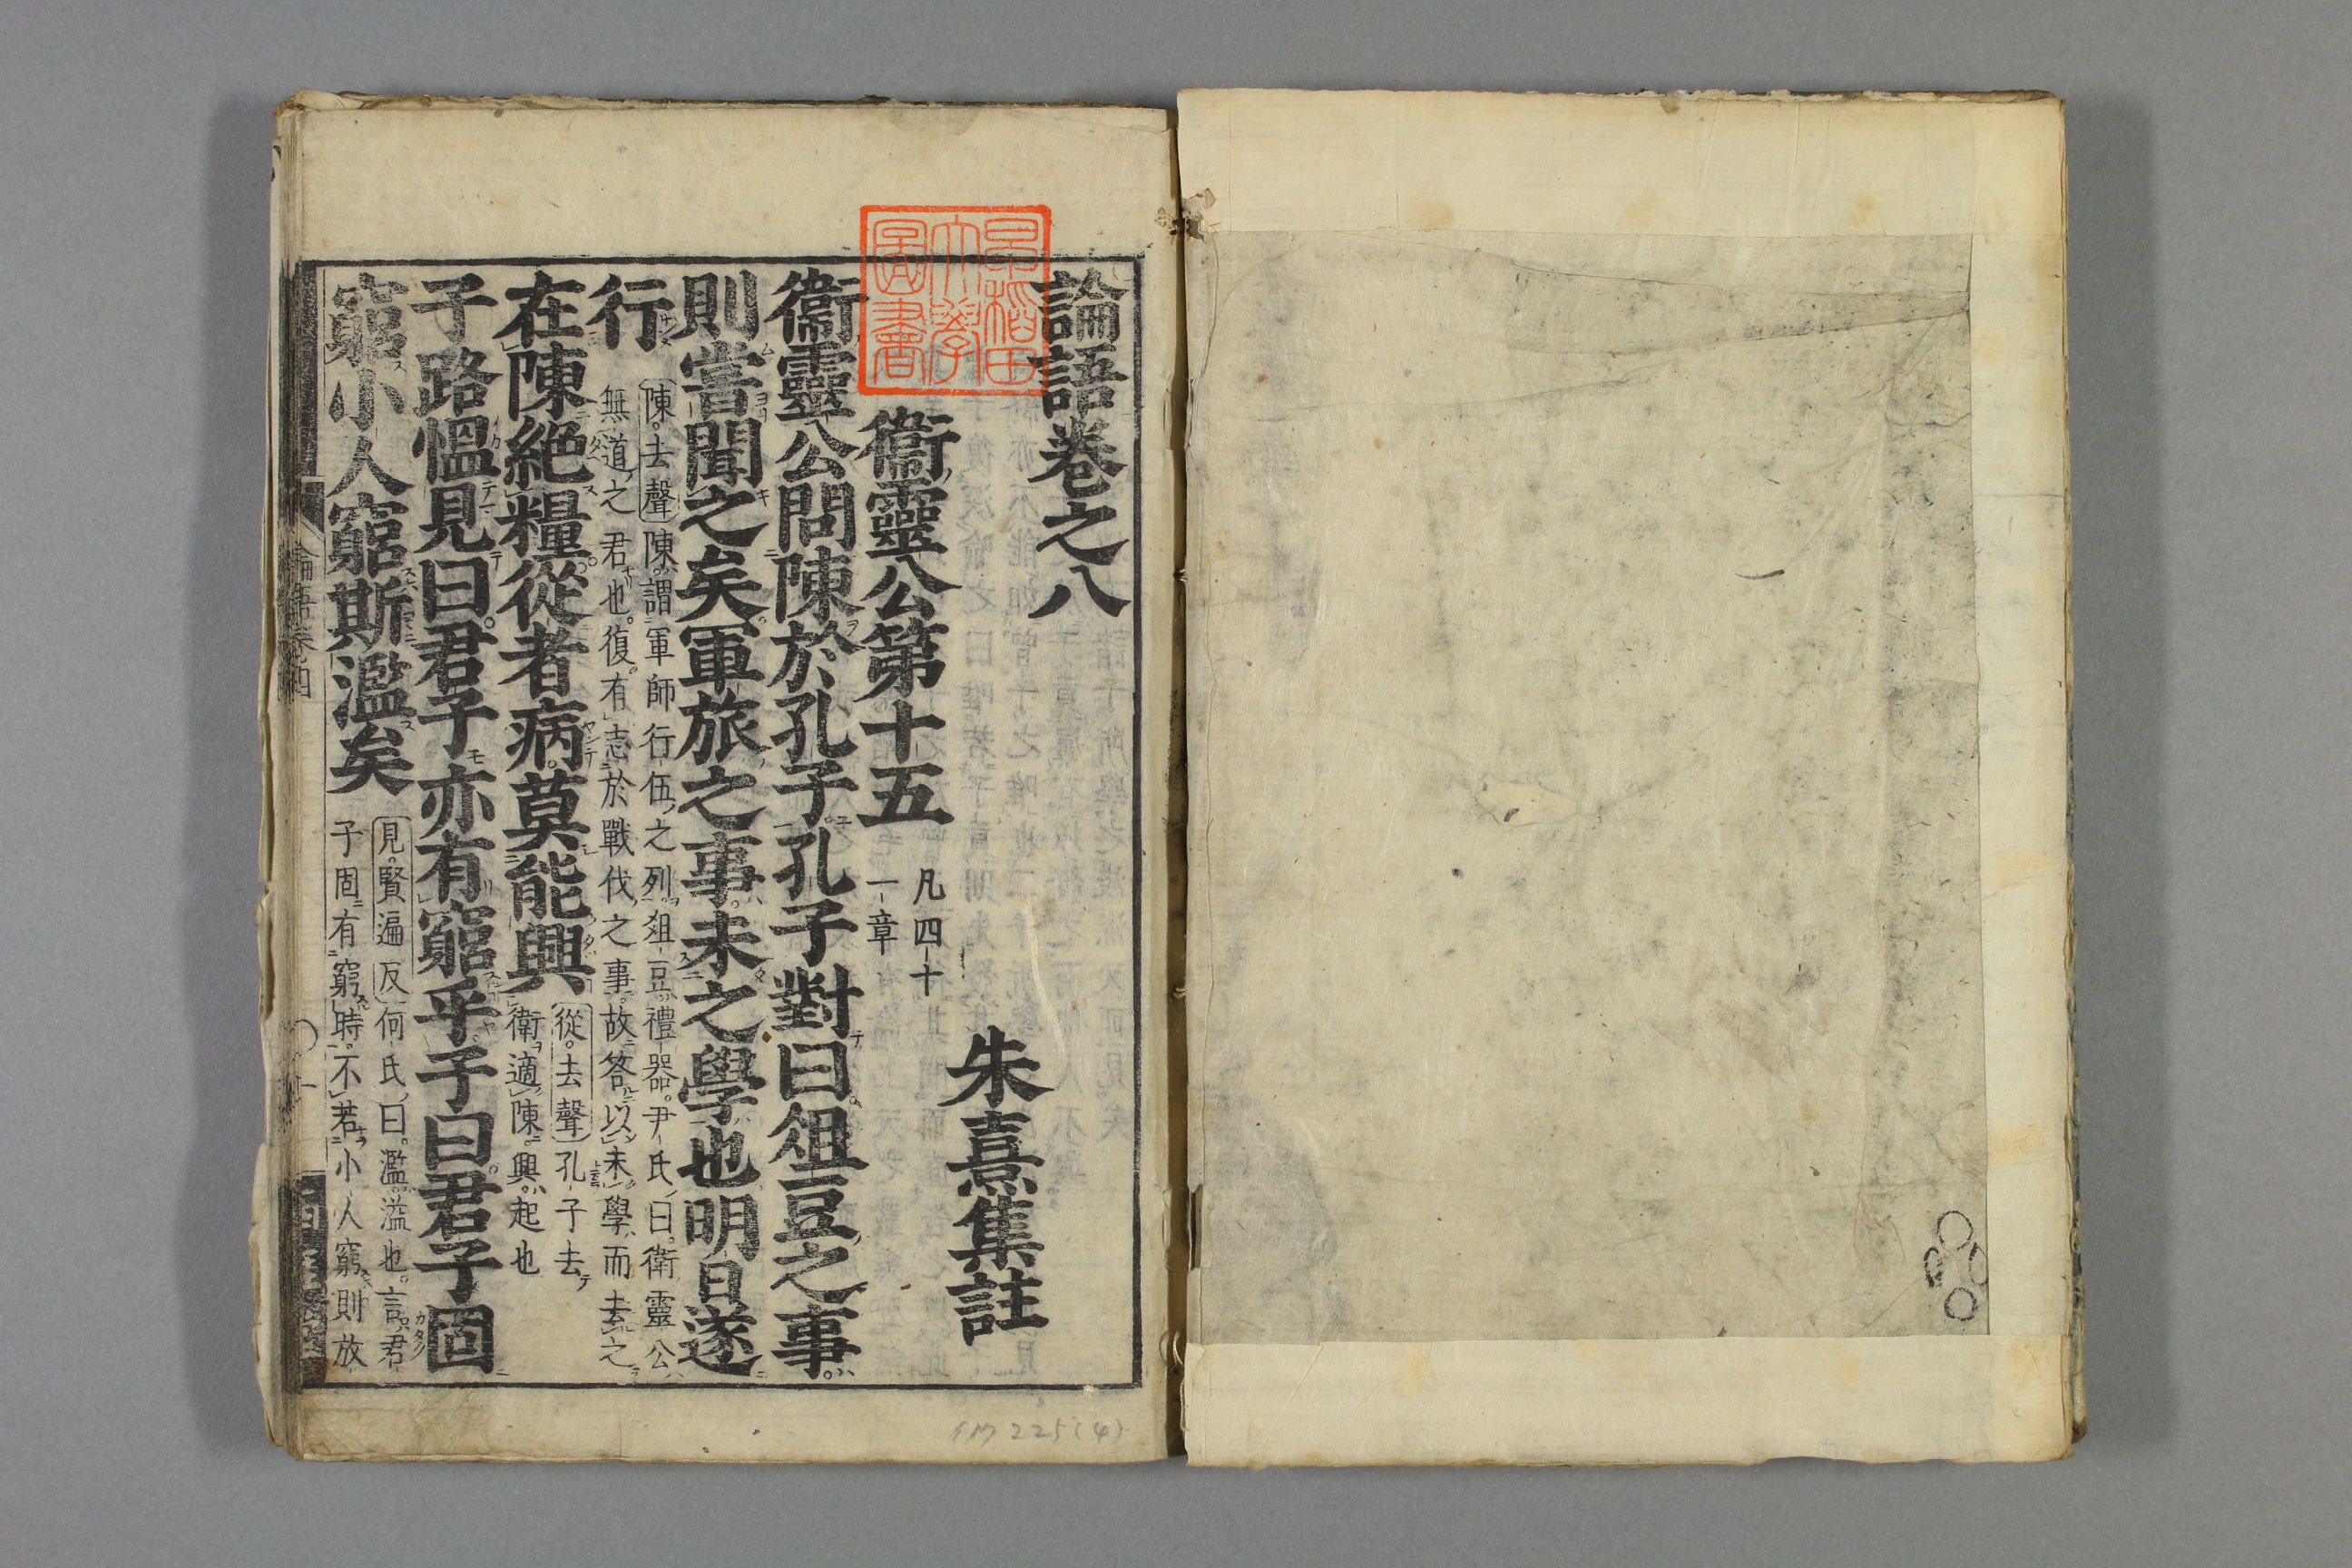 論語卷之八
朱熹集註
衞靈公第十五 凡四十
一章
衞靈公問陳於孔子孔子對曰俎豆之事
則嘗聞之矣軍旅之事未之學也明日遂
行
陳去聲陳謂軍師行伍之列俎豆禮器尹氏曰衛靈公
無道之君也復有志於戰伐之事故答以未學而去之
在陳絕糧從者病莫能興
從去聲孔子去
衛適陳興起也
子路慍見曰君子亦有窮乎子曰君子固
窮小人窮斯濫矣
見賢遍反何氏曰濫溢也言君
子固有窮時不若小人窮則放
早稻田
大學
圖書
225(4)